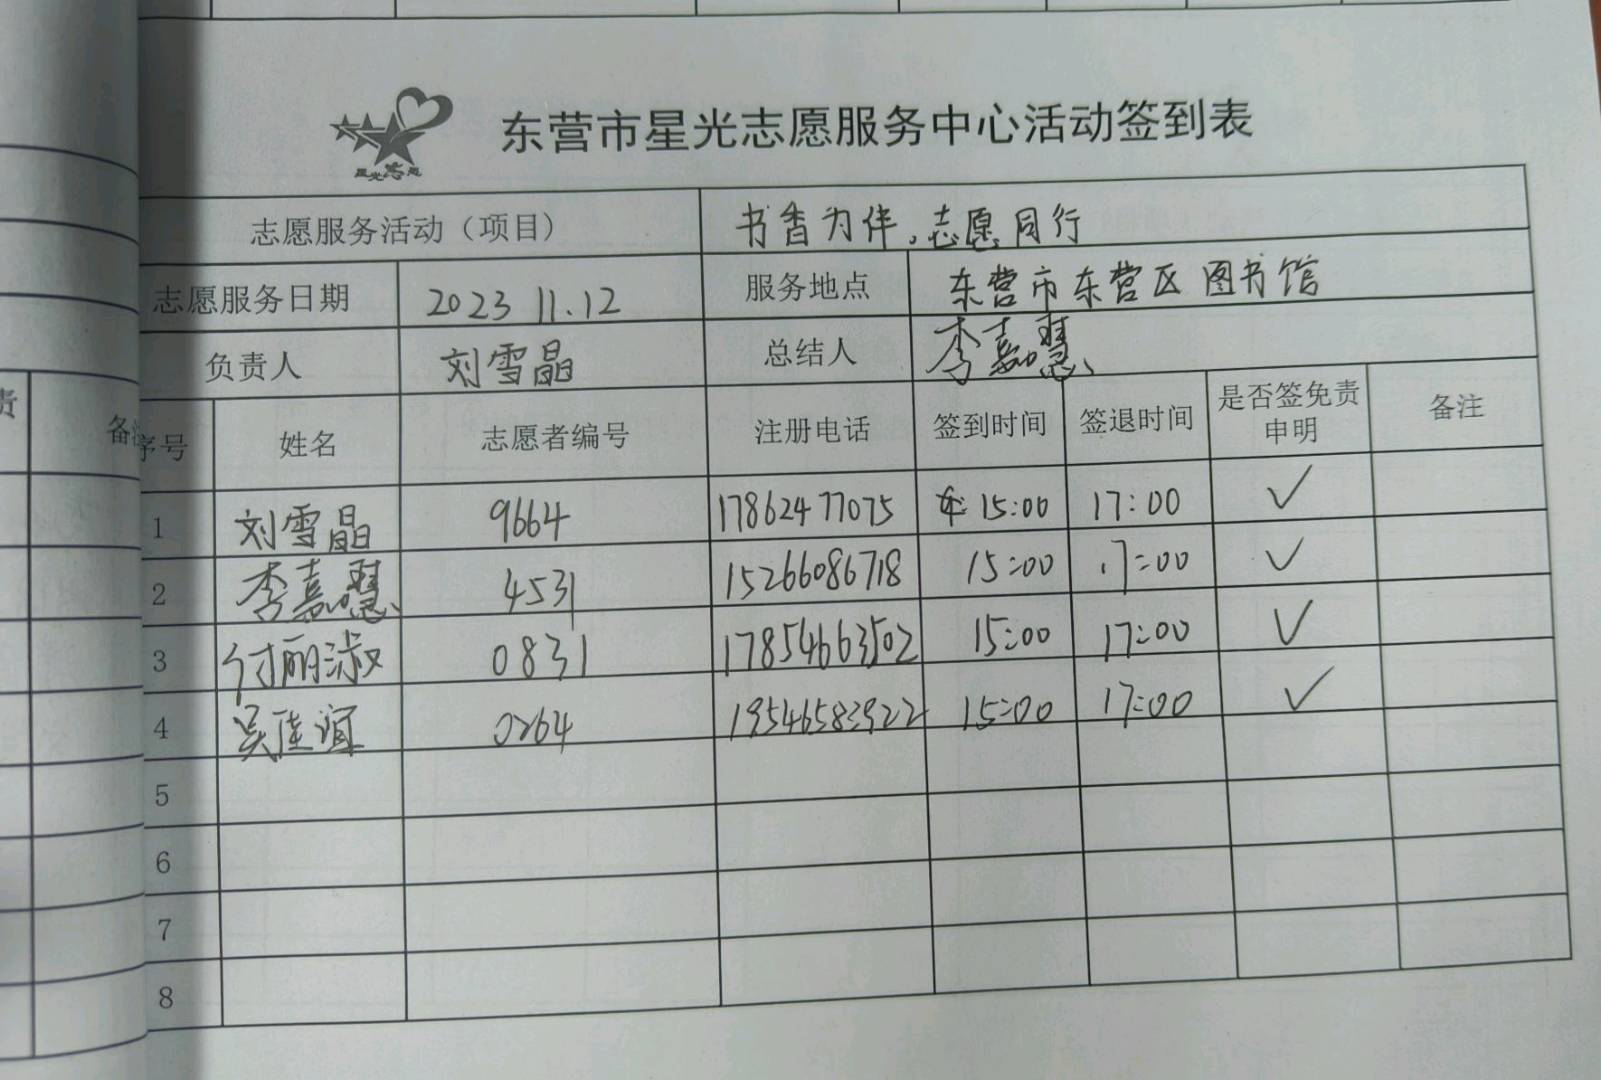 星光志愿
东营市星光志愿服务中心活动签到表
志愿服务活动（项目） 书香为伴，志愿同行
志愿服务日期 2023 11.12 服务地点 东营市东营区图书馆
负责人 刘雪晶 总结人 李嘉慧
责 备注
序号 姓名 志愿者编号 注册电话 签到时间 签退时间 是否签免责申明 备注
1 刘雪晶 9664 17862477075 15:00 17:00 ✓
2 李嘉慧 4531 15266086718 15:00 17:00 ✓
3 付丽淑 0831 17854663502 15:00 17:00 ✓
4 吴佳谊 0264 19546583922 15:00 17:00 ✓
5
6
7
8